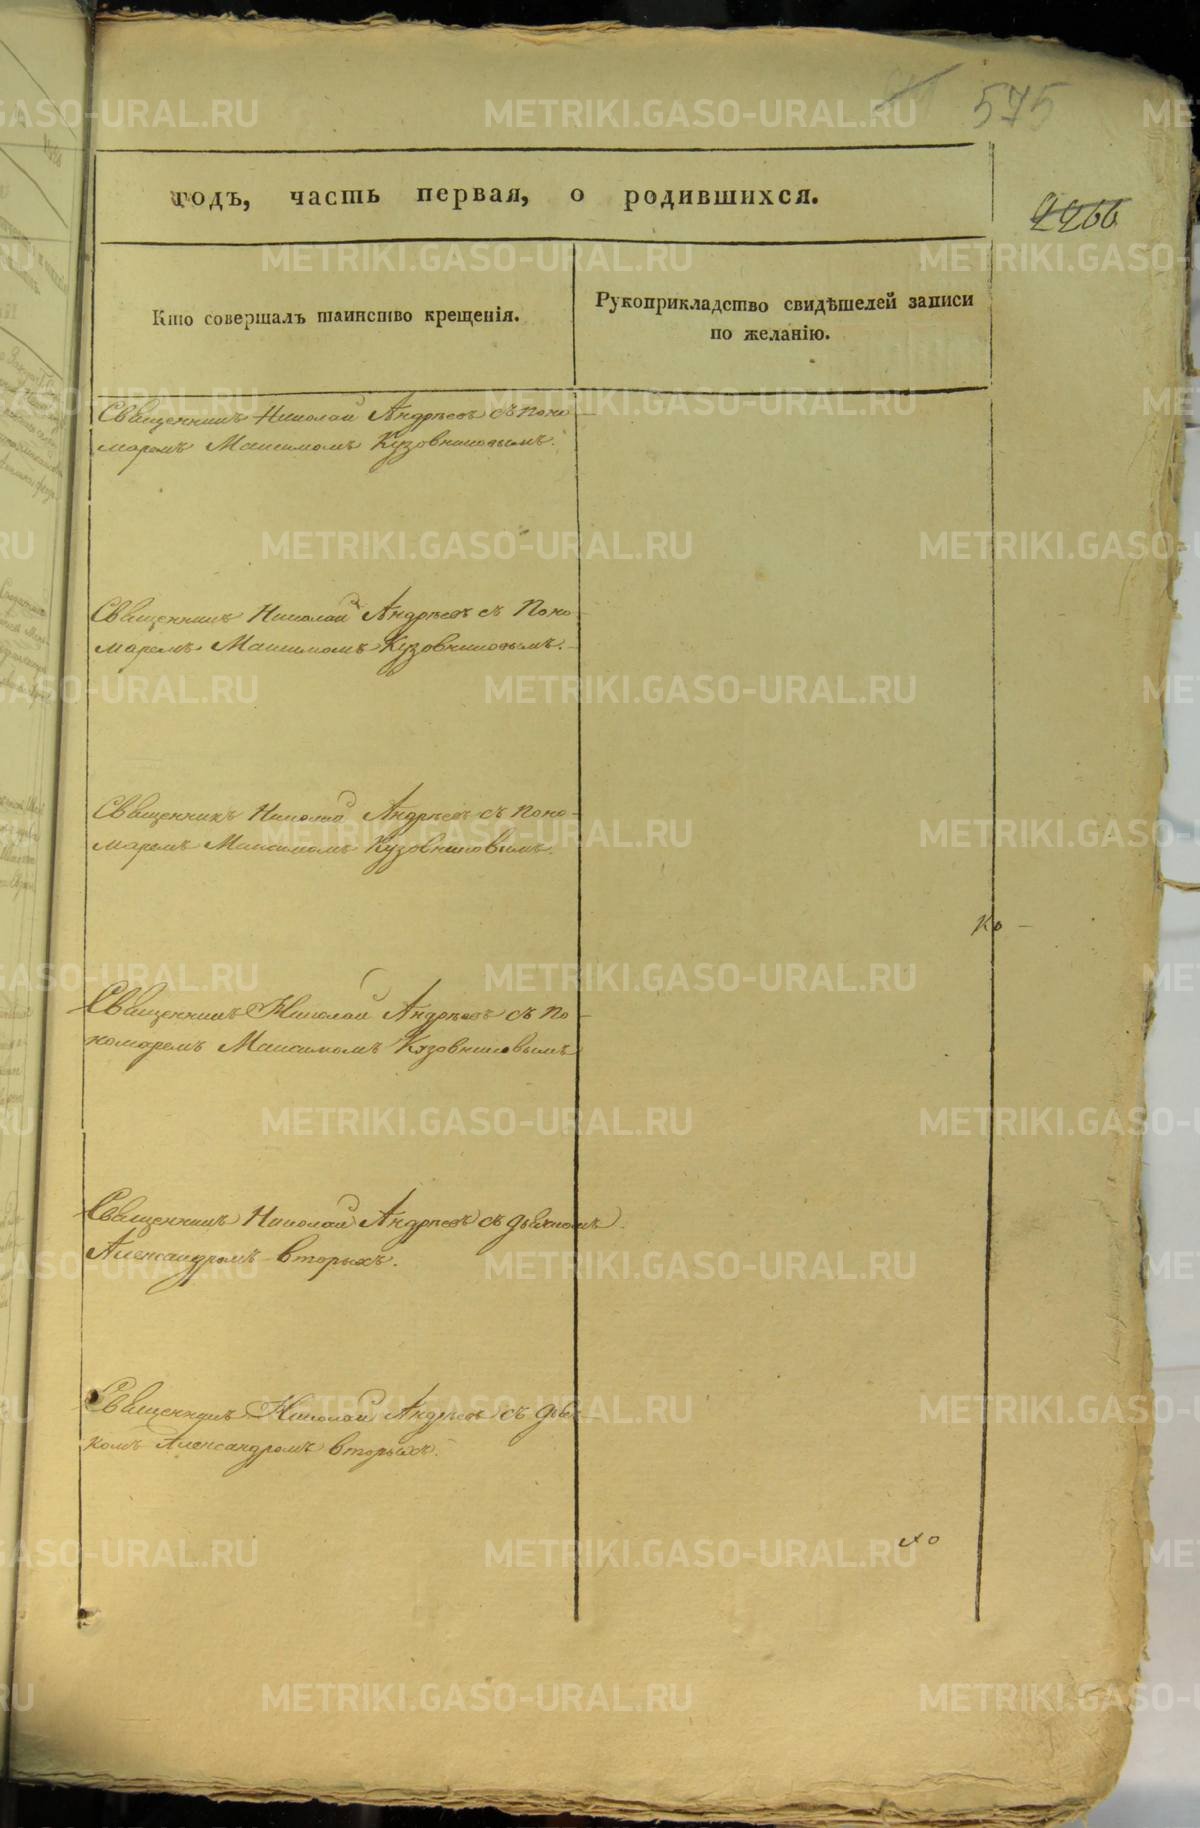 575
2266
годъ, часть первая, о родившихся.
Кто совершалъ таинство крещенія.
Рукоприкладство свидѣтелей записи
по желанію.
Священникъ Николай Андреевъ съ поно
маремъ Максимомъ Кузовниковымъ.
Священникъ Николай Андреевъ съ Поно
маремъ Максимомъ Кузовниковымъ.
Священникъ Николай Андреевъ съ Поно
маремъ Максимомъ Кузовниковымъ.
Ко
Священникъ Николай Андреевъ съ По
номаремъ Максимомъ Кузовниковымъ
Священникъ Николай Андреевъ съ дьячкомъ
Александромъ Вторыхъ.
Священникъ Николай Андреевъ съ дьяч
комъ Александромъ Вторыхъ.
METRIKI.GASO-URAL.RU